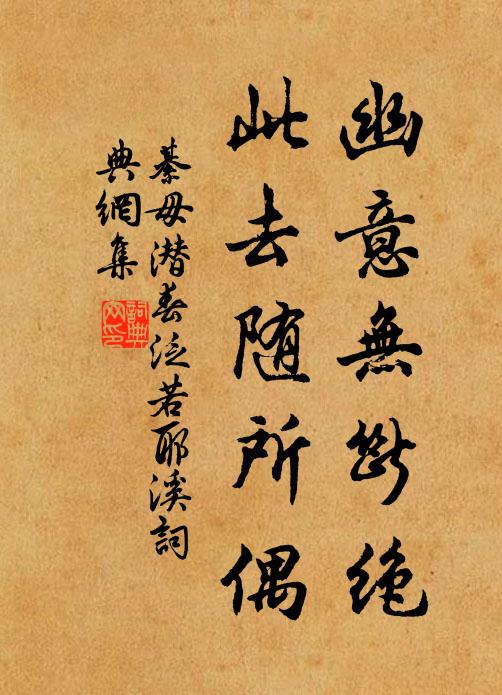 幽意無斷絶
此去随所偶
綦毋潜春泛若耶溪詞
典網集
詞典
网印